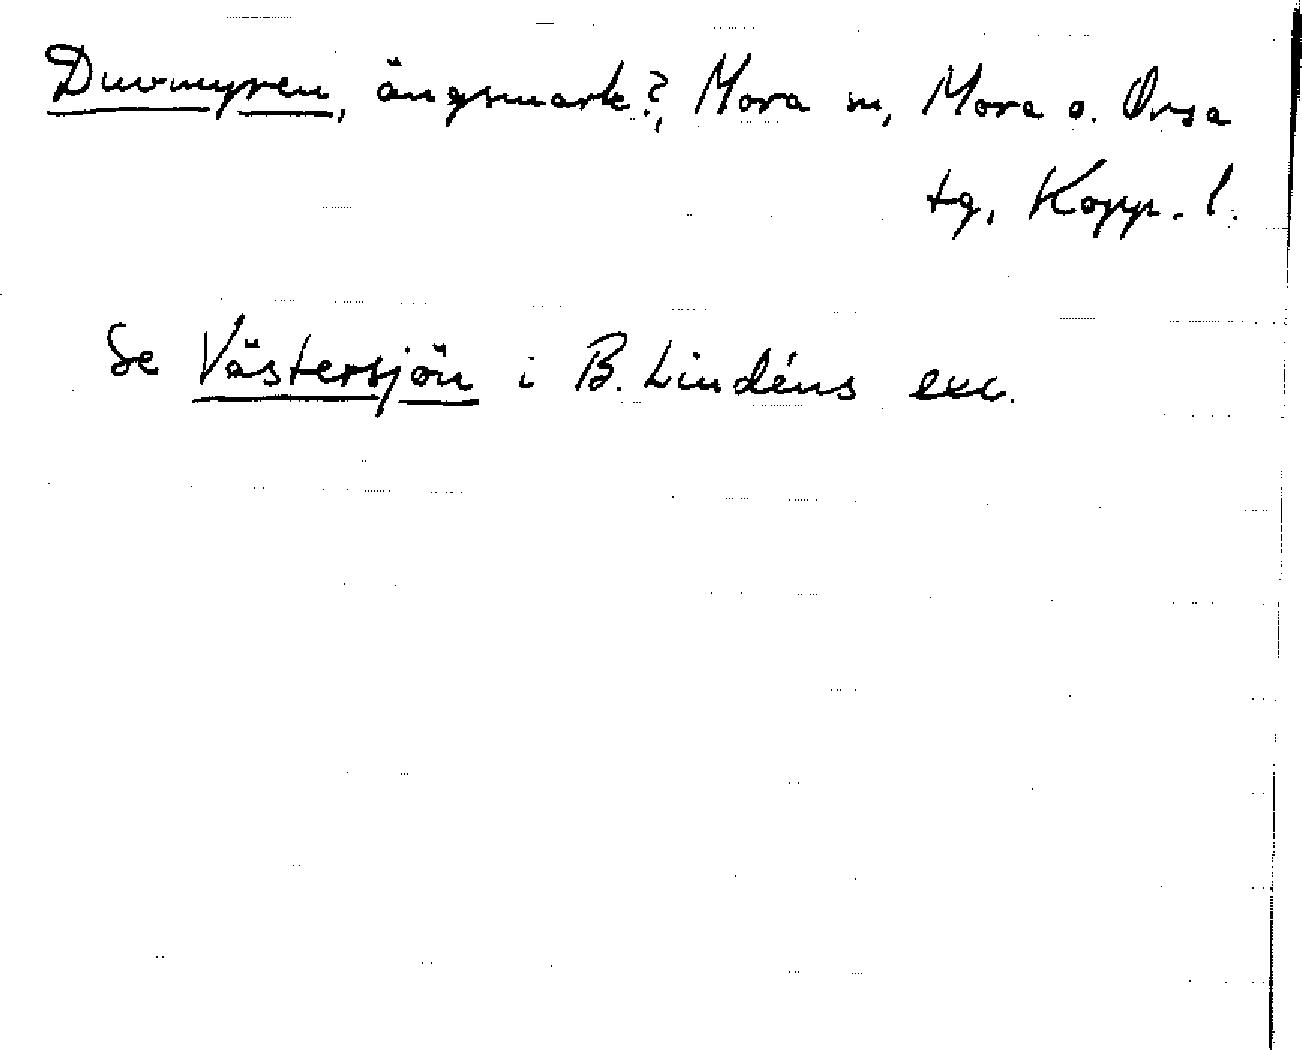 Duvmyren, ängsmark?, Mora sn, Mora o. Orsa
tg, Kopp. l.
Se Västersjön i B. Lindéns exc.